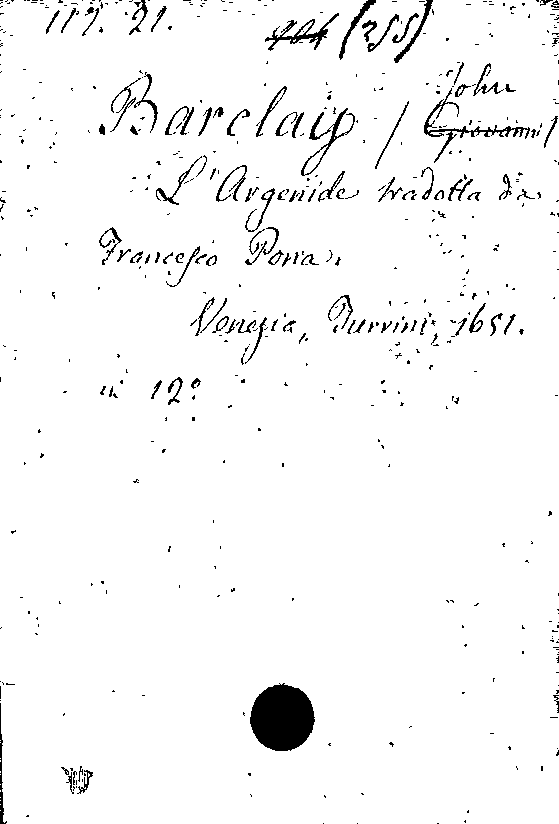 117. 21. 904 (255)
John
Barclaÿ / Giovanni /
L'Argenide tradotta da
Francesco Pona.
Venezia, Turrini, 1651.
in 12º